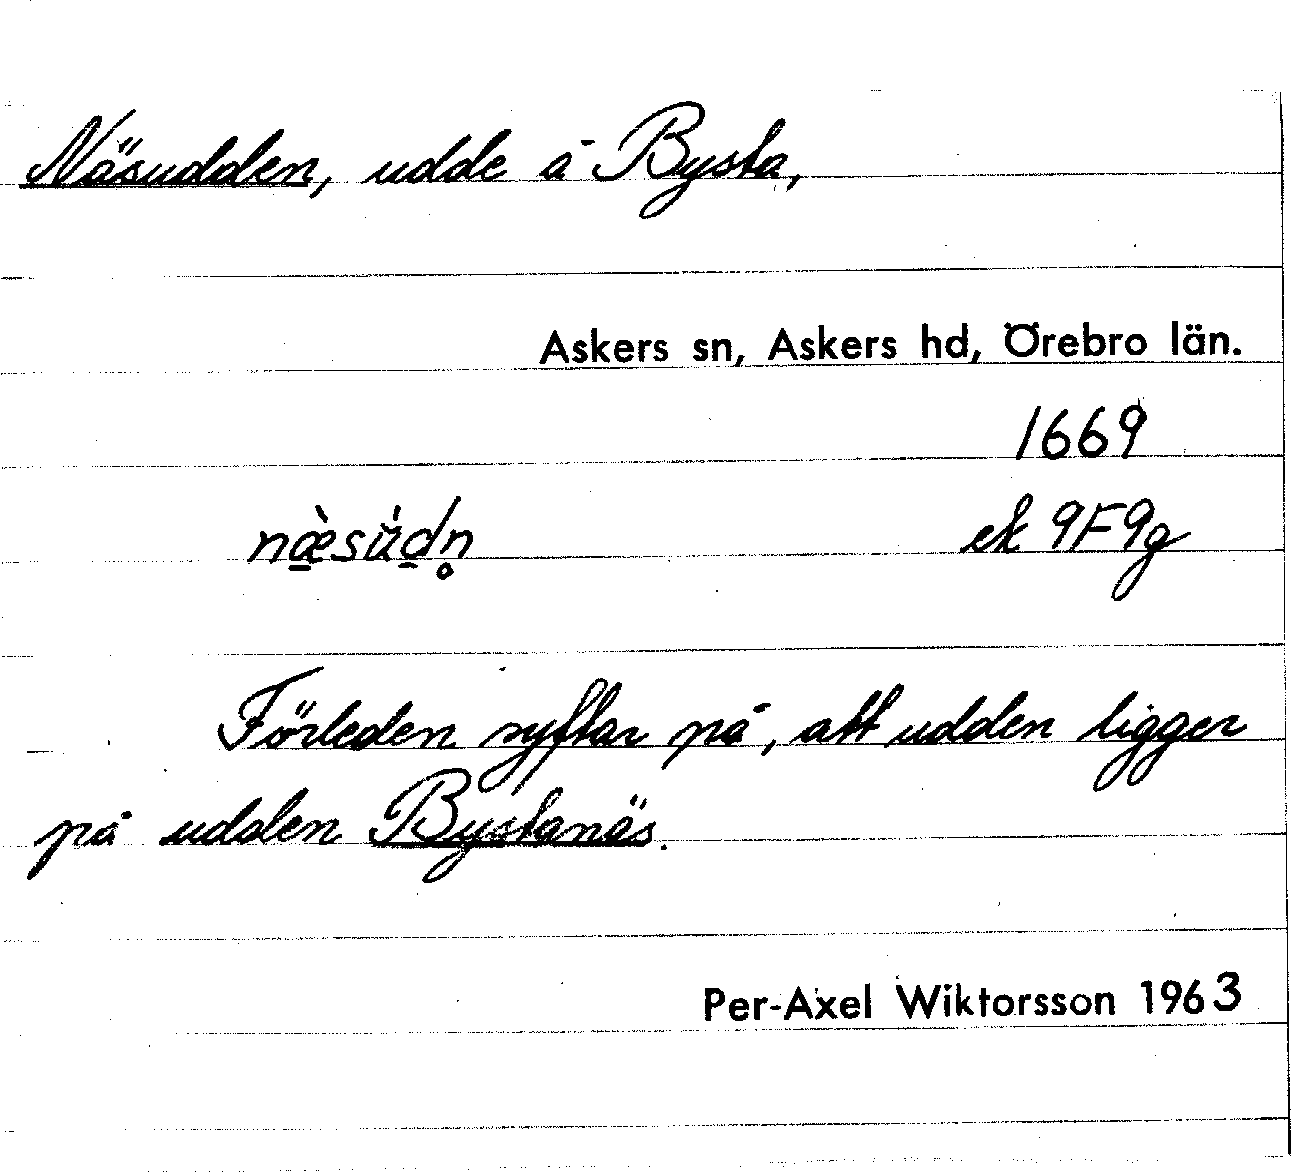 Näsudden, udde å Bysta,
Askers sn, Askers hd, Örebro län.
1669
næ̀sùdn̥ ek 9F9g
Förleden syftar på, att udden ligger
på udden Bystanäs.
Per-Axel Wiktorsson 1963